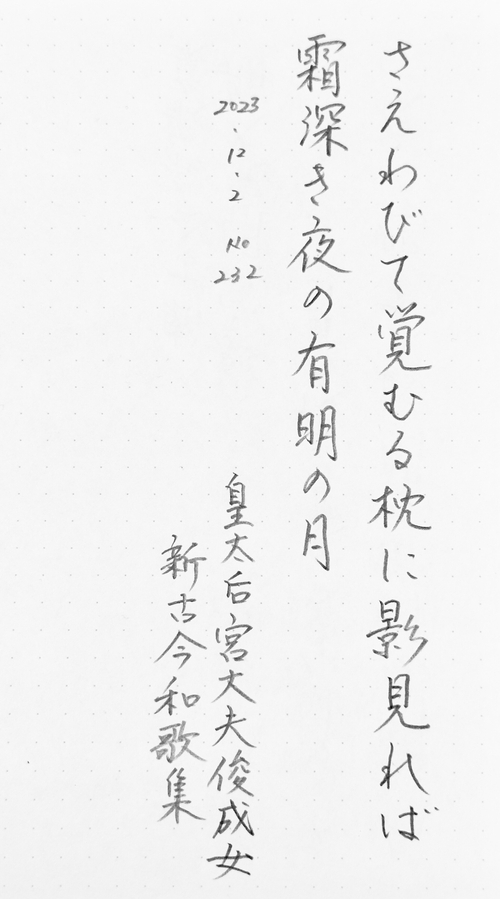 さえわびて覚むる枕に影見れば
霜深き夜の有明の月
2023.12.2 No 232
皇太后宮大夫俊成女
新古今和歌集